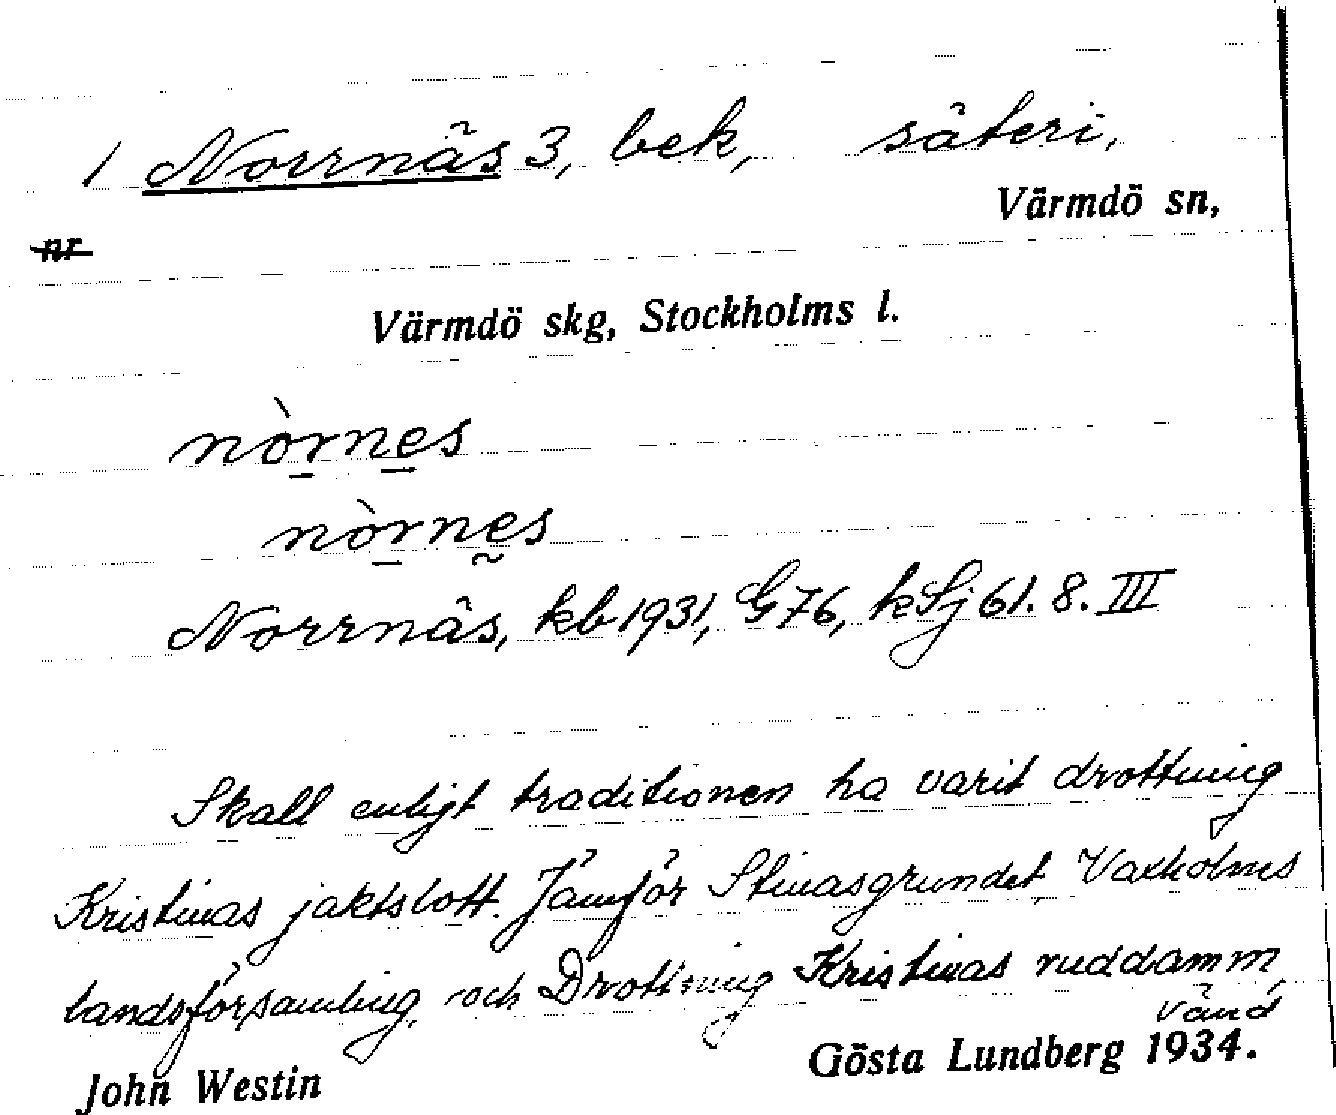 1 Norrnäs 3, bek, säteri,
Värmdö sn,
nr
Värmdö skg, Stockholms l.
nòrnes
nòrnes
Norrnäs, kb 1931, G76, kSj 61. 8. III
Skall enligt traditionen ha varit drottning
Kristinas jaktslott. Jämför Stinasgrundet, Vaxholms
landsförsamling, och Drottning Kristinas ruddamm,
vänd
John Westin Gösta Lundberg 1934.